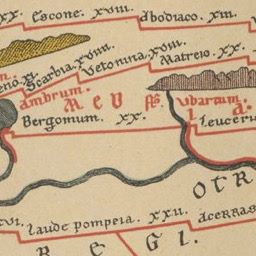 xx. Escone. xviii. Abodiaco. xiii.
Scarbia. xviiii. Vetonina. xviii. Matreio. xx.
ambrum. M E V fl. Vbartum
Bergomum. xx. I. a.
Leuceru
O T R
xvi. Laude Pompeia. xxii. Acerras
R E G I.